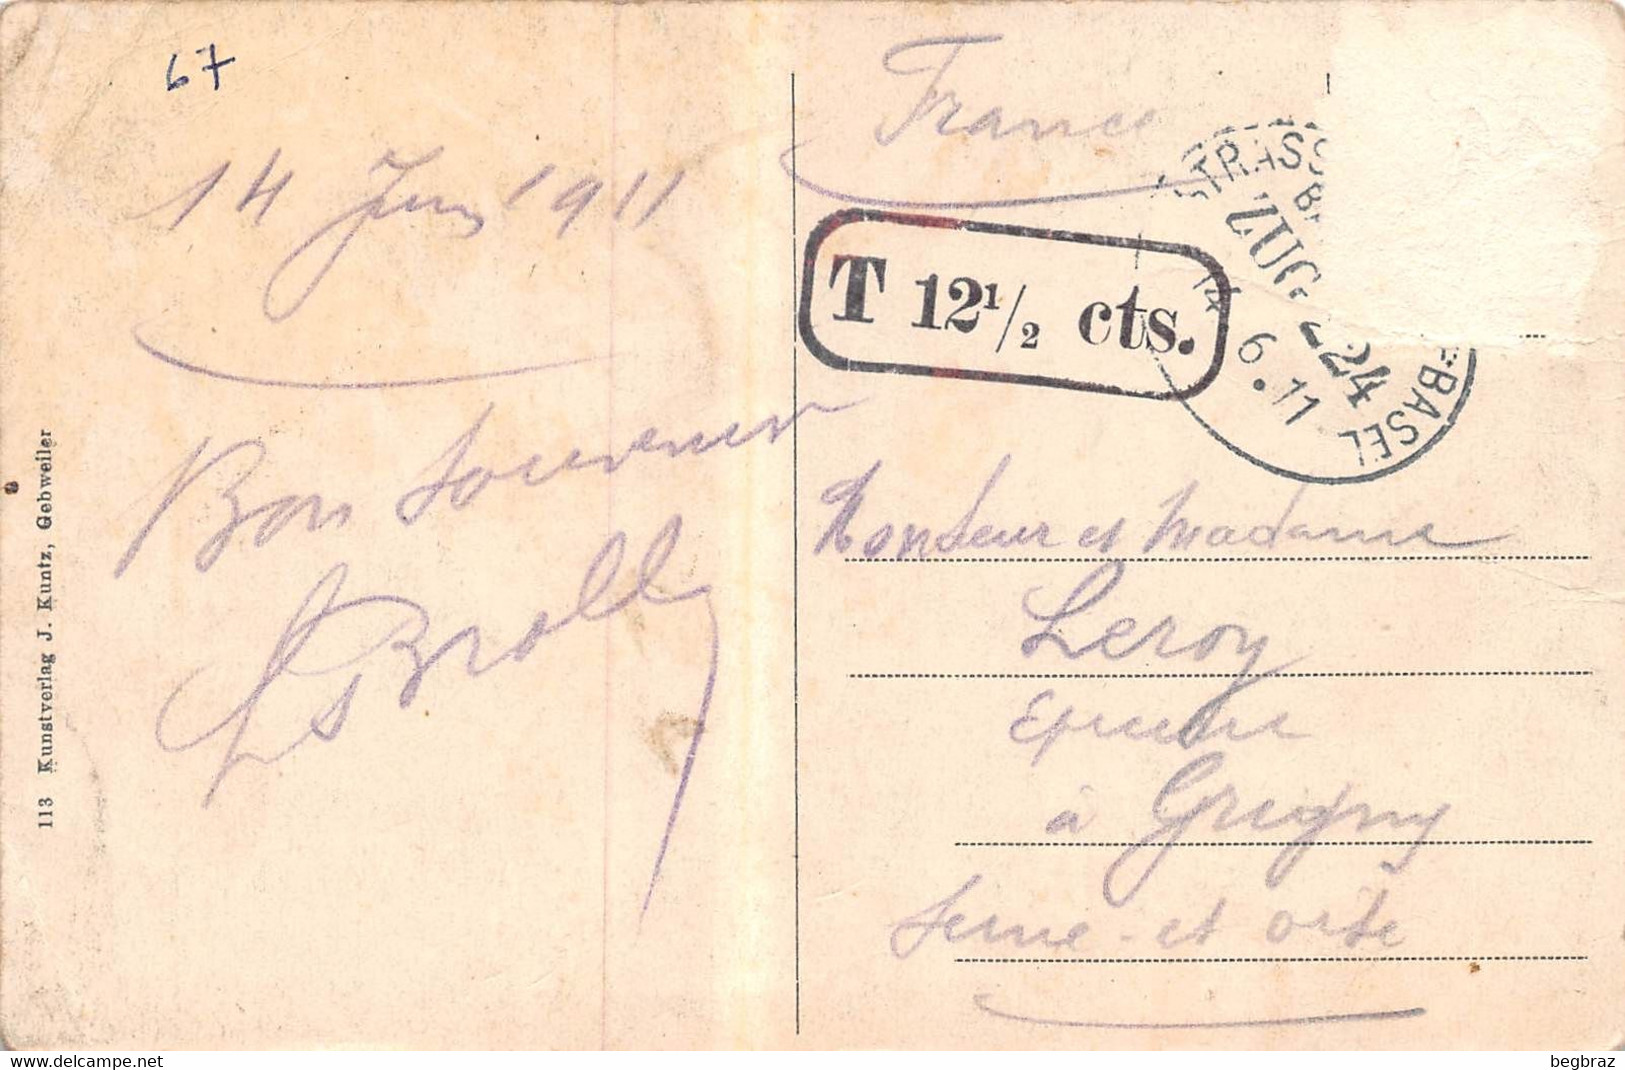 67
14 Juin 1911
Bon souvenir
Ls Brolly
113 Kunstverlag J. Kuntz, Gebweiler
France
T 12 1/2 cts.
STRASS
ZUG 224
14 6.11
BASEL
Monsieur et Madame
Leroy
à Grigny
Seine-et oise
delcampe.net
begbraz